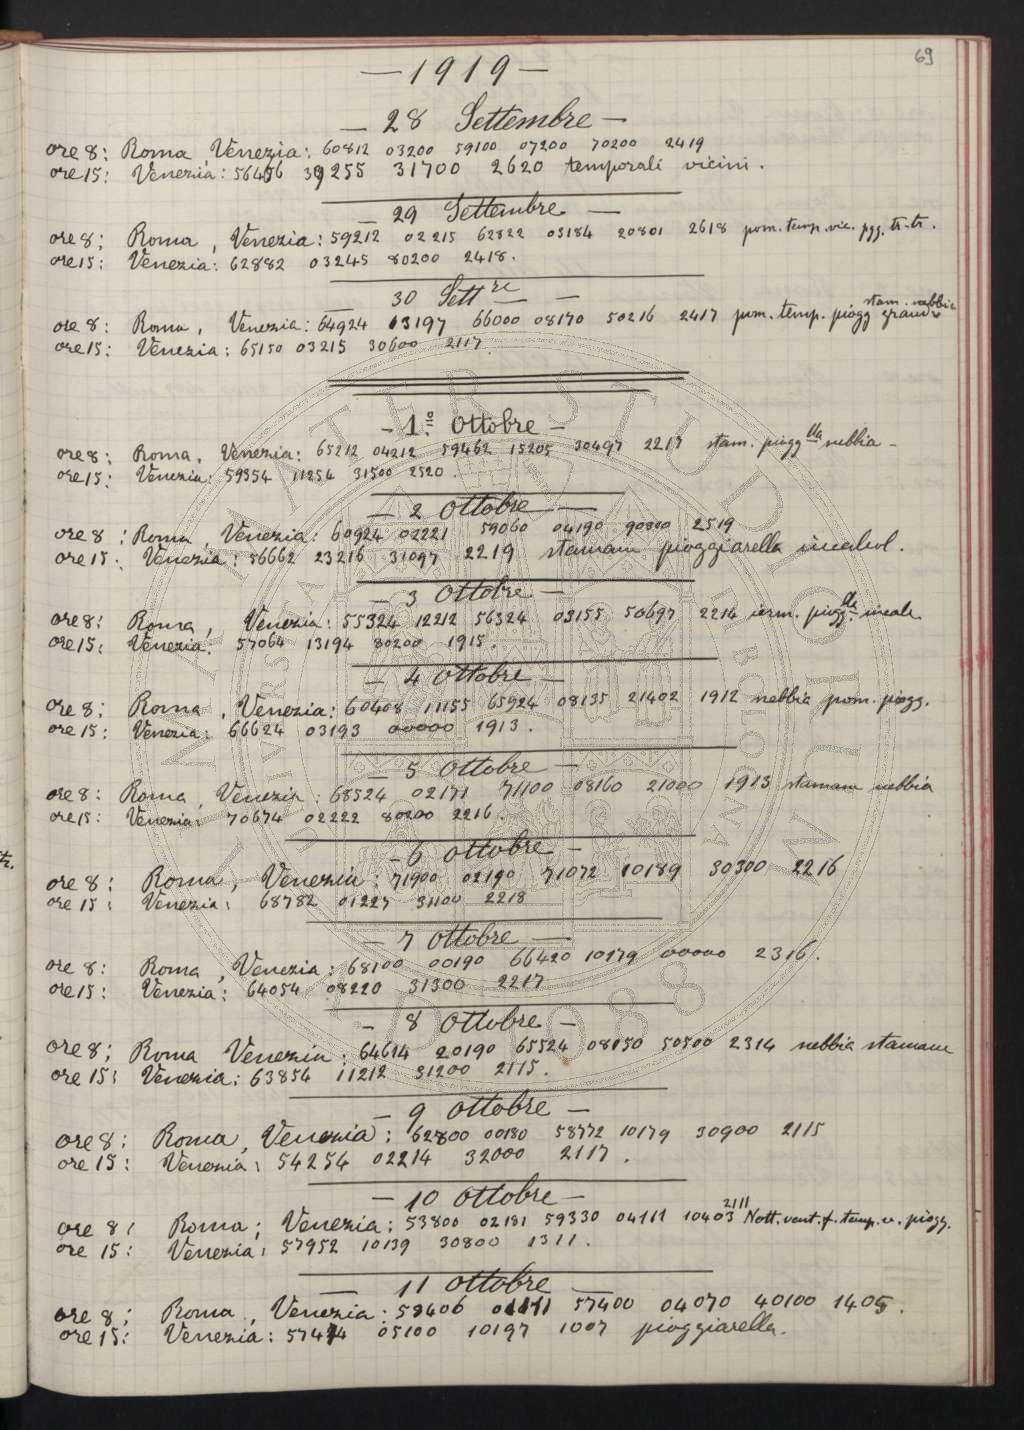 69
— 1919 —
— 28 Settembre —
ore 8: Roma, Venezia: 60812 03200 59100 07200 70200 2419
ore 15: Venezia: 56456 39255 31700 2620 temporali vicini.
— 29 Settembre —
ore 8: Roma, Venezia: 59212 02215 62822 03184 20801 2618 pom. temp. vic. pgg. tr. tr.
ore 15: Venezia: 62882 03245 80200 2418.
30 Sett re —
stam. nebbia
ore 8: Roma, Venezia: 64924 13197 66000 08170 50216 2417 pom. temp. piogg
ore 15: Venezia: 65150 03215 30600 2117.
— 1.º Ottobre —
ore 8: Roma, Venezia: 65212 04212 59462 15205 30497 2217 stam. piogg lla nebbia -
ore 15: Venezia: 59354 11254 31500 2520.
— 2 Ottobre —
ore 8: Roma, Venezia: 60924 02221 59060 04190 90800 2519
ore 15: Venezia: 56662 23216 31097 2219 stamam pioggiarella incalcol.
— 3 Ottobre —
ore 8: Roma, Venezia: 55324 12212 56324 03155 50697 2214 piogg. lla incalc
ore 15: Venezia: 57064 13194 80200 1915.
— 4 Ottobre —
ore 8: Roma, Venezia: 60408 11155 65924 08135 21402 1912 nebbia pom. piogg.
ore 15: Venezia: 66624 03193 00000 1913.
— 5 Ottobre —
ore 8: Roma, Venezia: 68524 02171 71100 08160 21000 1913 stamam nebbia
ore 15: Venezia: 70674 02222 80200 2216.
— 6 Ottobre —
ore 8: Roma, Venezia: 71900 02190 71072 10189 30300 2216
ore 15: Venezia: 68782 01227 31100 2218
— 7 Ottobre —
ore 8: Roma, Venezia: 68100 00190 66420 10179 00000 2316.
ore 15: Venezia: 64054 08220 31300 2217
— 8 Ottobre —
ore 8: Roma Venezia: 64614 20190 65524 08150 50500 2314 nebbia stamam
ore 15: Venezia: 63854 11212 31200 2115.
— 9 Ottobre —
ore 8: Roma, Venezia: 62800 00180 58772 10179 30900 2115
ore 15: Venezia: 54254 02214 32000 2117.
— 10 Ottobre —
2111
ore 8: Roma; Venezia: 53800 02181 59330 04111 10403 Nott. vent. f. temp. v. piogg.
ore 15: Venezia: 57952 10139 30800 1311.
— 11 Ottobre —
ore 8: Roma, Venezia: 58406 01171 57400 04070 40100 1405.
ore 15: Venezia: 57474 05100 10197 1007 pioggiarella.
ALMA MATER STUDIORUM
A.D. 1088